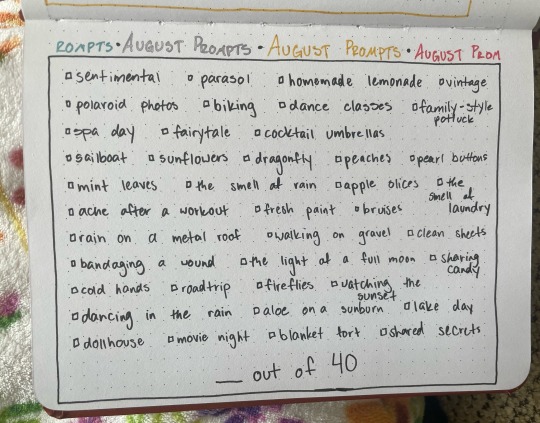 ROMPTS • AUGUST PROMPTS • AUGUST PROMPTS • AUGUST PROM
sentimental parasol homemade lemonade vintage
polaroid photos biking dance classes family-style potluck
spa day fairytale cocktail umbrellas
sailboat sunflowers dragonfly peaches pearl buttons
mint leaves the smell of rain apple slices the smell of laundry
ache after a workout fresh paint bruises
rain on a metal roof walking on gravel clean sheets
bandaging a wound the light of a full moon sharing candy
cold hands roadtrip fireflies watching the sunset
dancing in the rain aloe on a sunburn lake day
dollhouse movie night blanket fort shared secrets
__ out of 40